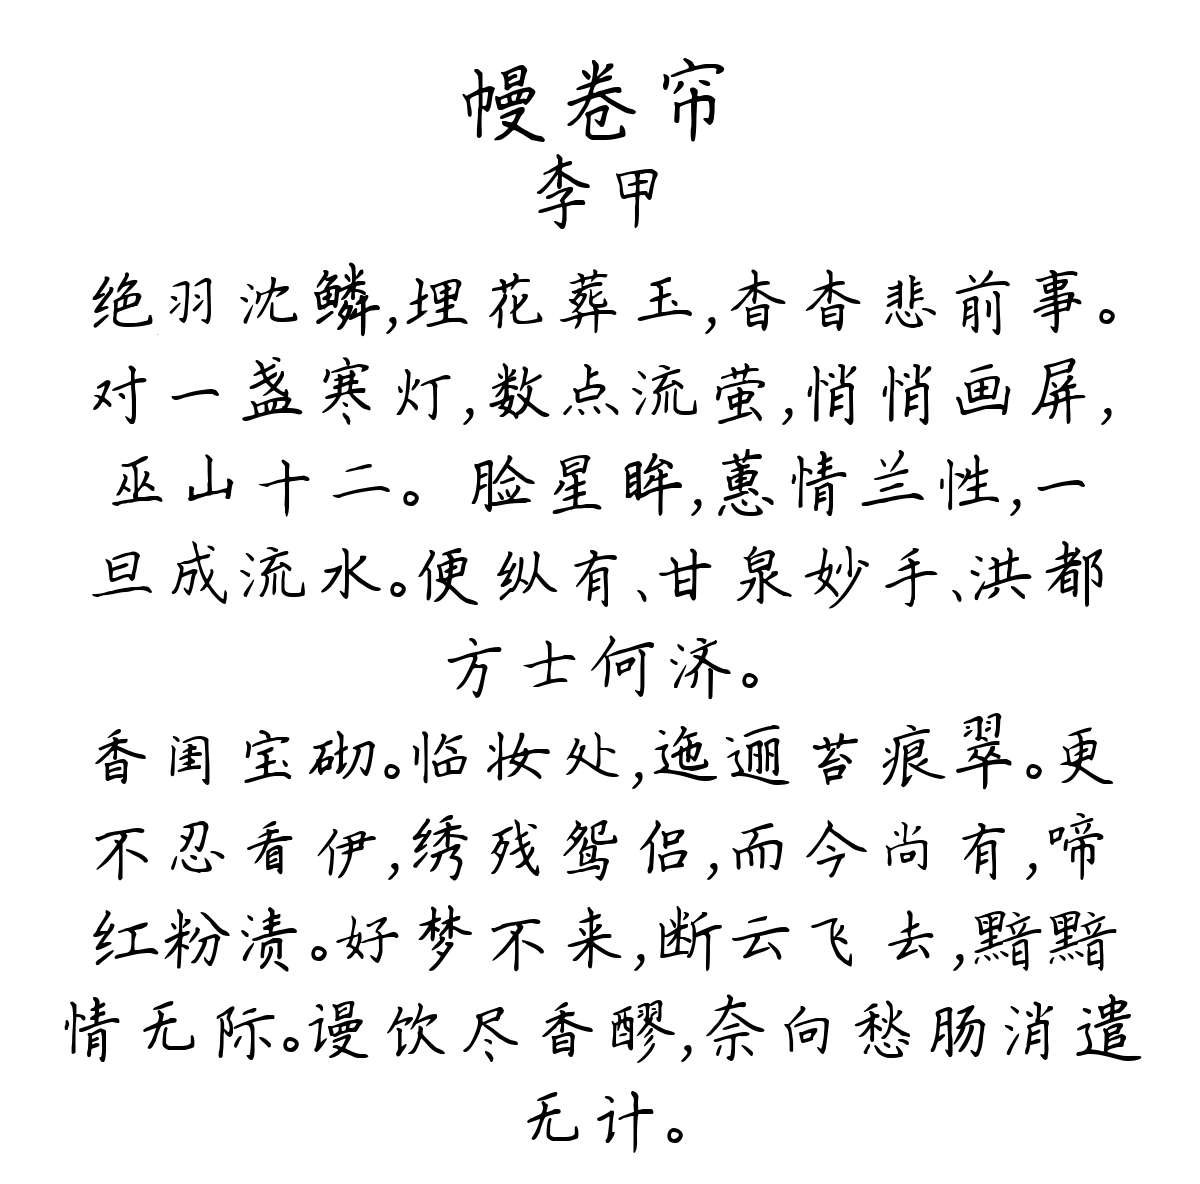 幔卷帘
李甲
绝羽沈鳞,埋花葬玉,杳杳悲前事。
对一盏寒灯,数点流萤,悄悄画屏,
巫山十二。脸星眸,蕙情兰性,一
旦成流水。便纵有、甘泉妙手、洪都
方士何济。
香闺宝砌。临妆处,迤逦苔痕翠。更
不忍看伊,绣残鸳侣,而今尚有,啼
红粉渍。好梦不来,断云飞去,黯黯
情无际。谩饮尽香醪,奈向愁肠消遣
无计。